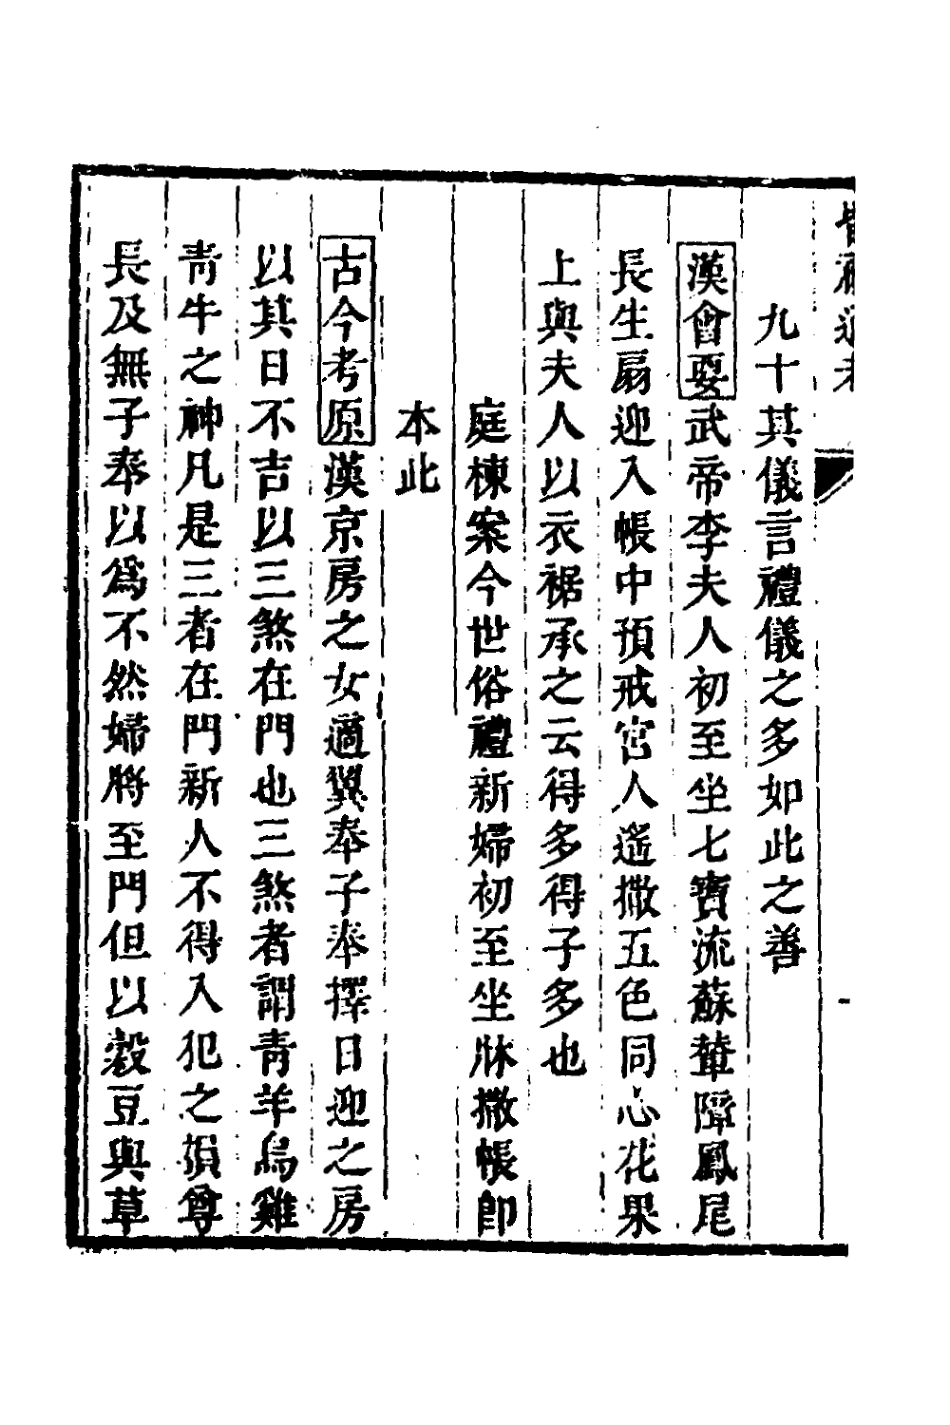 九十其儀言禮儀之多如此之善
漢會要武帝李夫人初至坐七寶流蘇輦障鳳尾
長生扇迎入帳中預戒宮人遙撒五色同心花果
上與夫人以衣裾承之云得多得子多也
庭棟案今世俗禮新婦初至坐牀撒帳卽
本此
古今考原漢京房之女適翼奉子奉擇日迎之房
以其日不吉以三煞在門也三煞者謂青羊烏雞
青牛之神凡是三者在門新人不得入犯之損尊
長及無子奉以爲不然婦將至門但以穀豆與草